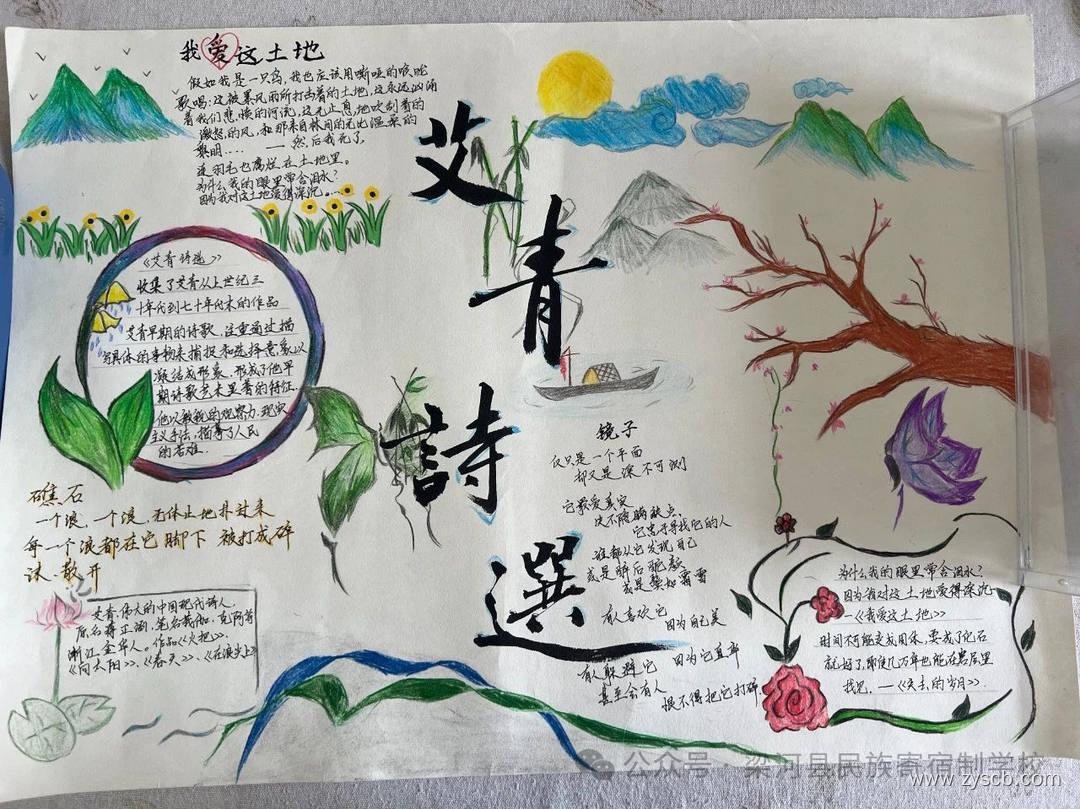 我爱这土地
假如我是一只鸟,我也应该用嘶哑的喉咙
歌唱:这被暴风雨所打击着的土地,这永远汹涌
着我们悲愤的河流,这无止息地吹刮着的
激怒的风,和那来自林间的无比温柔的
黎明.... — 然后我死了,
连羽毛也腐烂在土地里。
为什么我的眼里常含泪水?
因为我对这土地爱得深沉....
艾青詩選
《艾青诗选》
收集了艾青从上世纪三
十年代到七十年代末的作品
艾青早期的诗歌,注重通过描
写具体的事物来捕捉和选择意象,以
凝结成形象,形成了他早
期诗歌艺术显著的特征.
他以敏锐的观察力,现实
主义手法,描摹了人民
的苦难.
礁石
一个浪,一个浪,无休止地扑过来
每一个浪都在它脚下 被打成碎
沫、散开
艾青,伟大的中国现代诗人.
原名蒋正涵,笔名莪伽、克阿等
浙江金华人。作品《火把》、
《向太阳》、《春天》、《在浪尖上》
镜子
仅只是一个平面
却又是深不可测
它最爱真实
决不隐瞒缺点
它忠于寻找它的人
谁都从它发现自己
或是醉后酡颜
或是鬓如霜雪
有人喜欢它
因为自己美
有人躲避它
因为它直率
甚至会有人
恨不得把它打碎
为什么我的眼里常含泪水?
因为我对这土地爱得深沉
—《我爱这土地》
时间不可能变成固体,要成了化石
就好了,即使几万年也能在岩层里
找见. —《失去的岁月》
公众号 · 梁河县民族寄宿制学校
www.zyscb.com